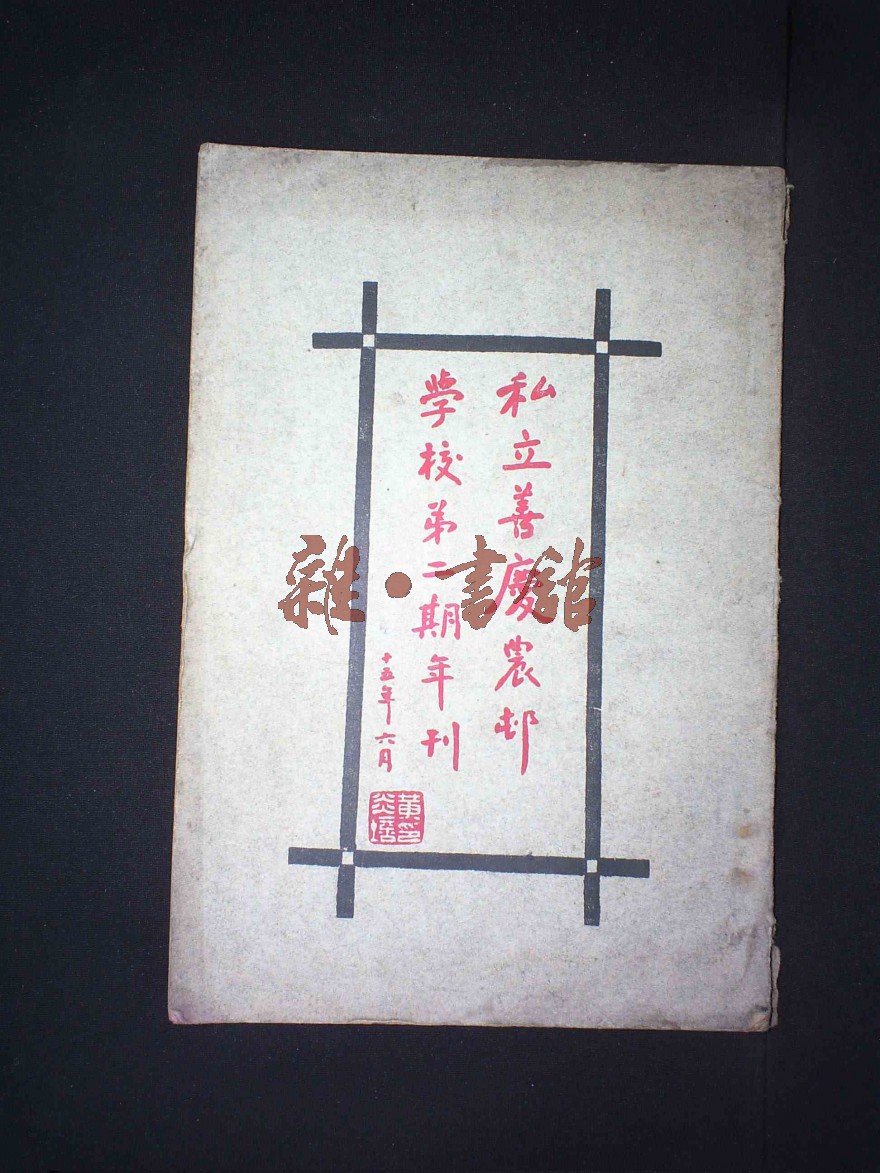 私立善慶農邨
学校第二期年刊
十五年六月
黃炎培印
雜·書館